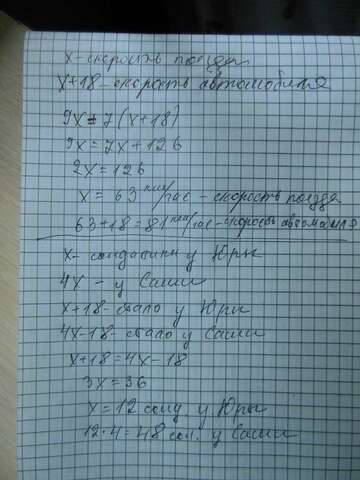 x - скорость поезда
x+18 - скорость автомобиля
9x = 7(x+18)
9x = 7x + 126
2x = 126
x = 63 км/час - скорость поезда
63+18 = 81 км/час - скорость автомобиля
x - солдатики у Юры
4x - у Саши
x+18 - стало у Юры
4x-18 - стало у Саши
x+18 = 4x-18
3x = 36
x = 12 солд. у Юры
12·4 = 48 сол. у Саши